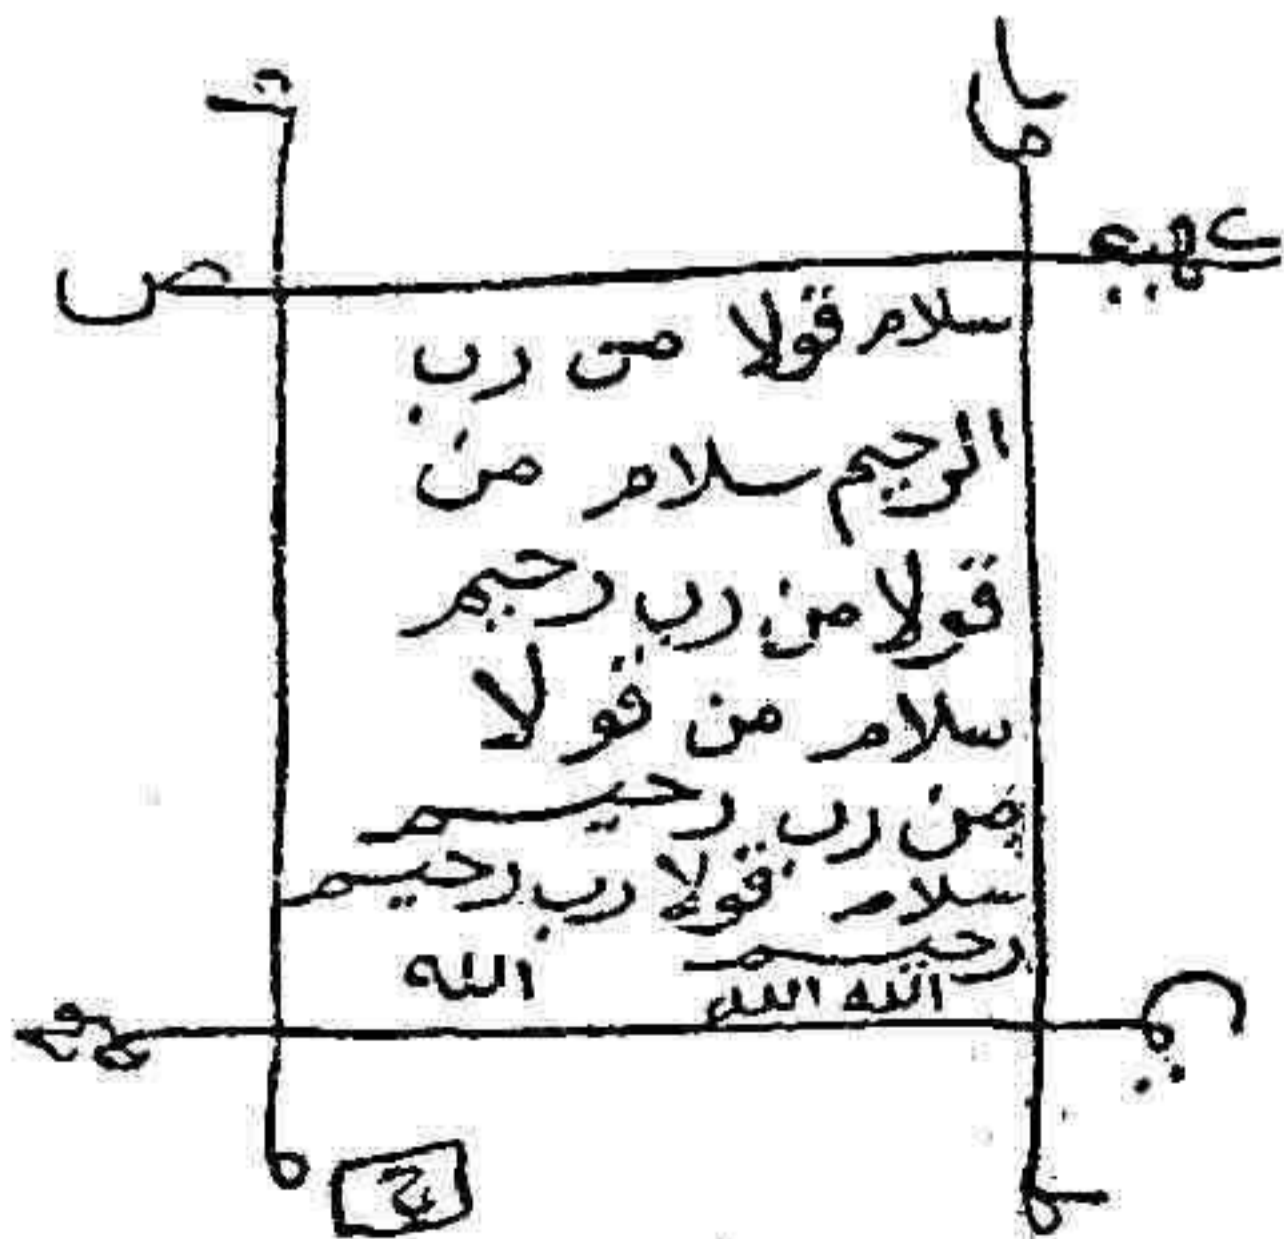 سلام قولا من رب
الرحيم سلام من
قولا من رب رحيم
سلام من قولا
من رب رحيم
سلام قولا رب رحيم
رحيم
الله الله الله